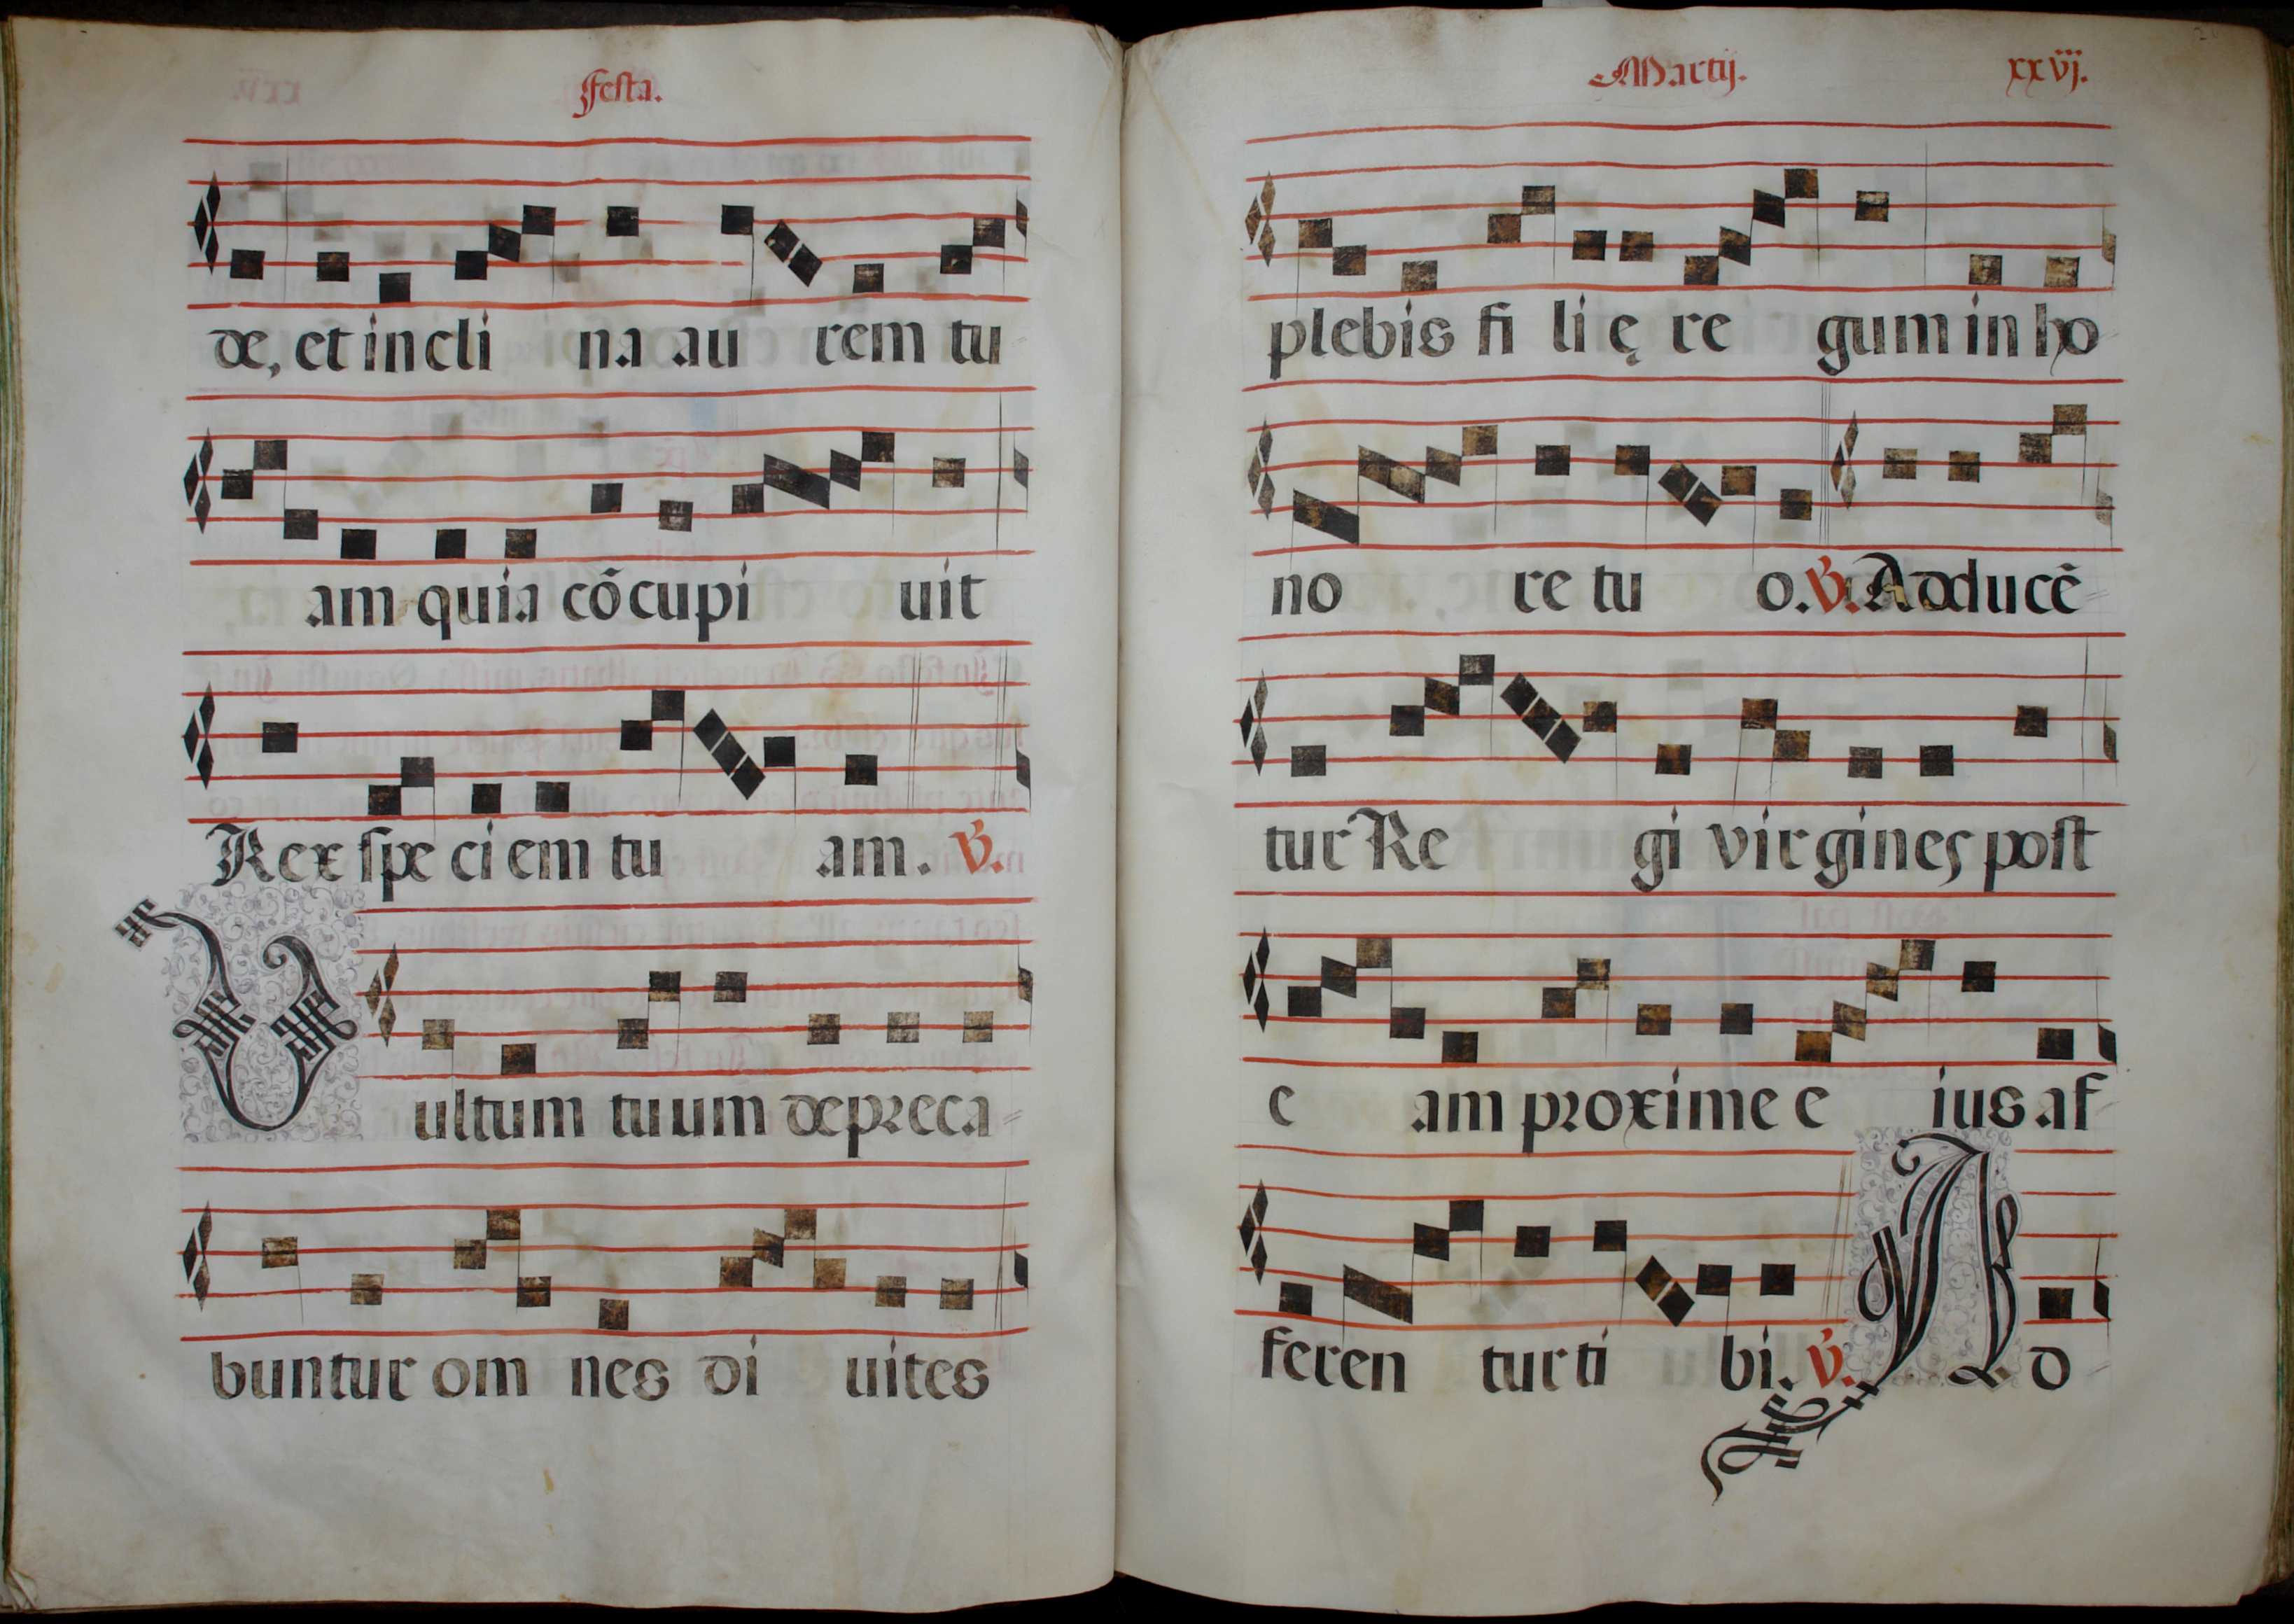 Festa.
de, et in cli na au rem tu
am quia cõcupi uit
Rex spe ci em tu am. V.
Vultum tuum depreca
buntur om nes di uites
Martij. xxvj.
plebis fi li ę re gum in ho
no re tu o. V. Adducẽ
tur Re gi virgines post
e am proxime e ius af
feren tur ti bi. V. Ad